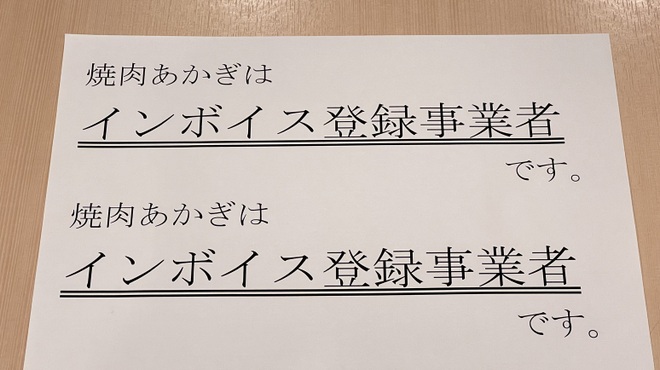 焼肉あかぎは
インボイス登録事業者
です。
焼肉あかぎは
インボイス登録事業者
です。